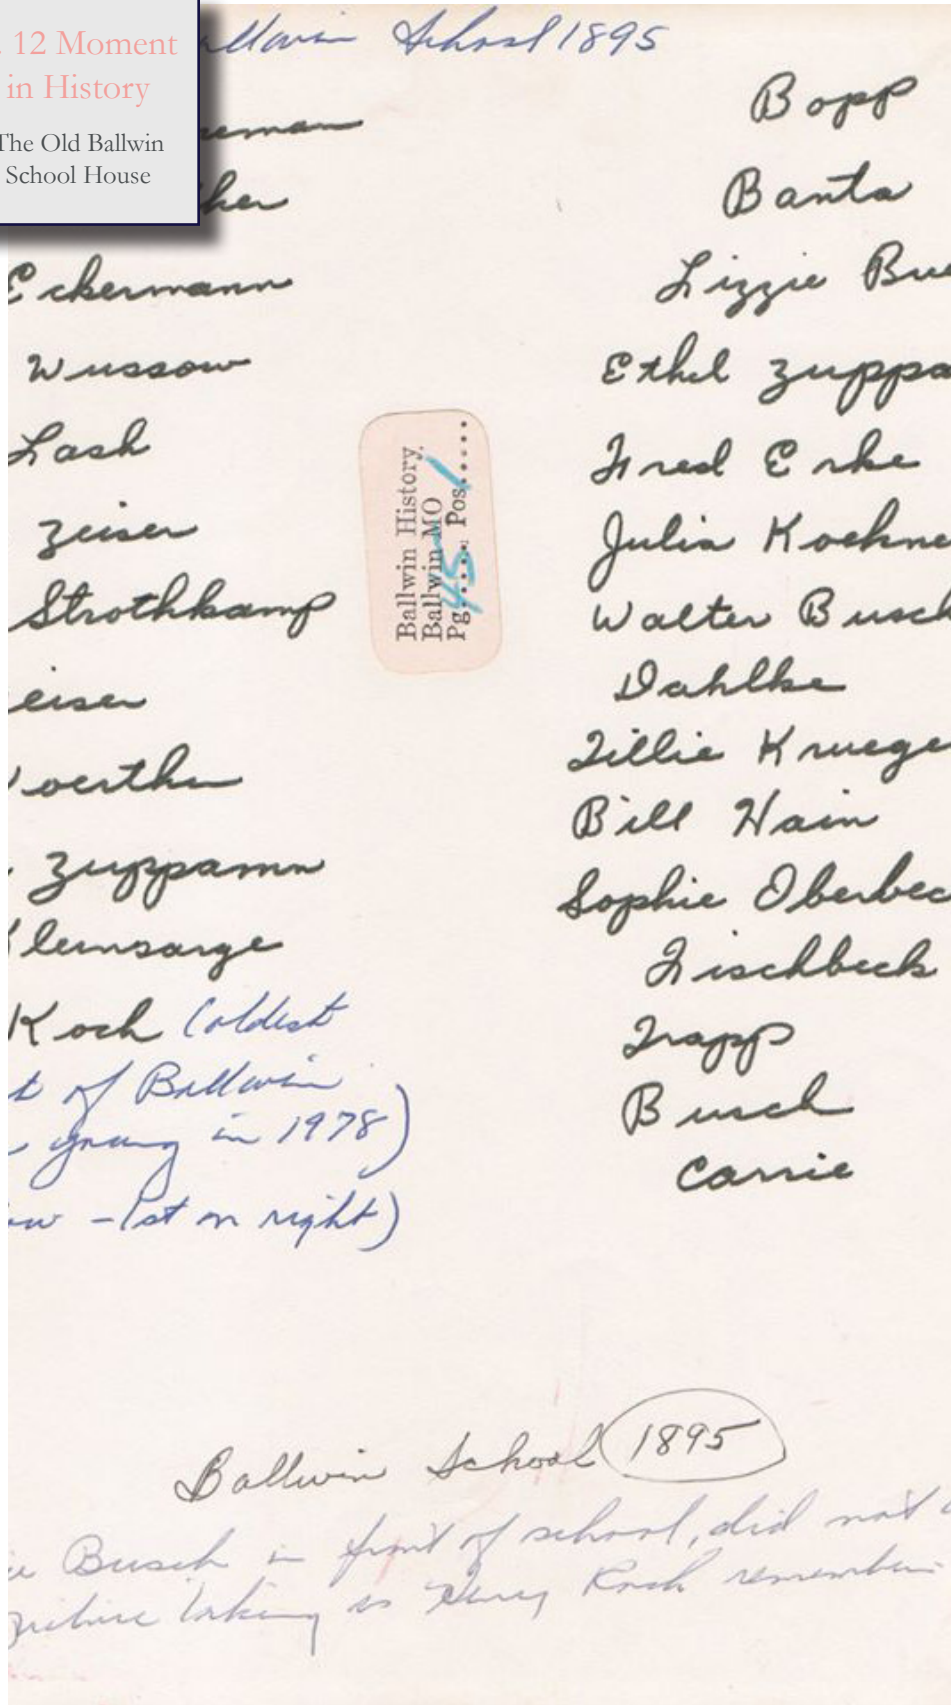 12 Moment
in History
The Old Ballwin
School House
School 1895
Eckermann
Wussow
Lash
Zeiser
Strothkamp
eiser
Zuppamn
Koch (oldest
of Ballwin
young in 1978)
-1st on right)
Ballwin History.
Ballwin MO
Pg..45.. Pos.1....
Bopp
Banta
Lizzie Bue
Ethel Zuppa
Fred Erke
Julia Koehne
Walter Busch
Dahlke
Tillie Kruege
Bill Hain
Sophie Oberbec
Fischbeck
Trapp
Busch
Carrie
Ballwin School 1895
Busch in front of school, did not
taking as Henry Koch remember